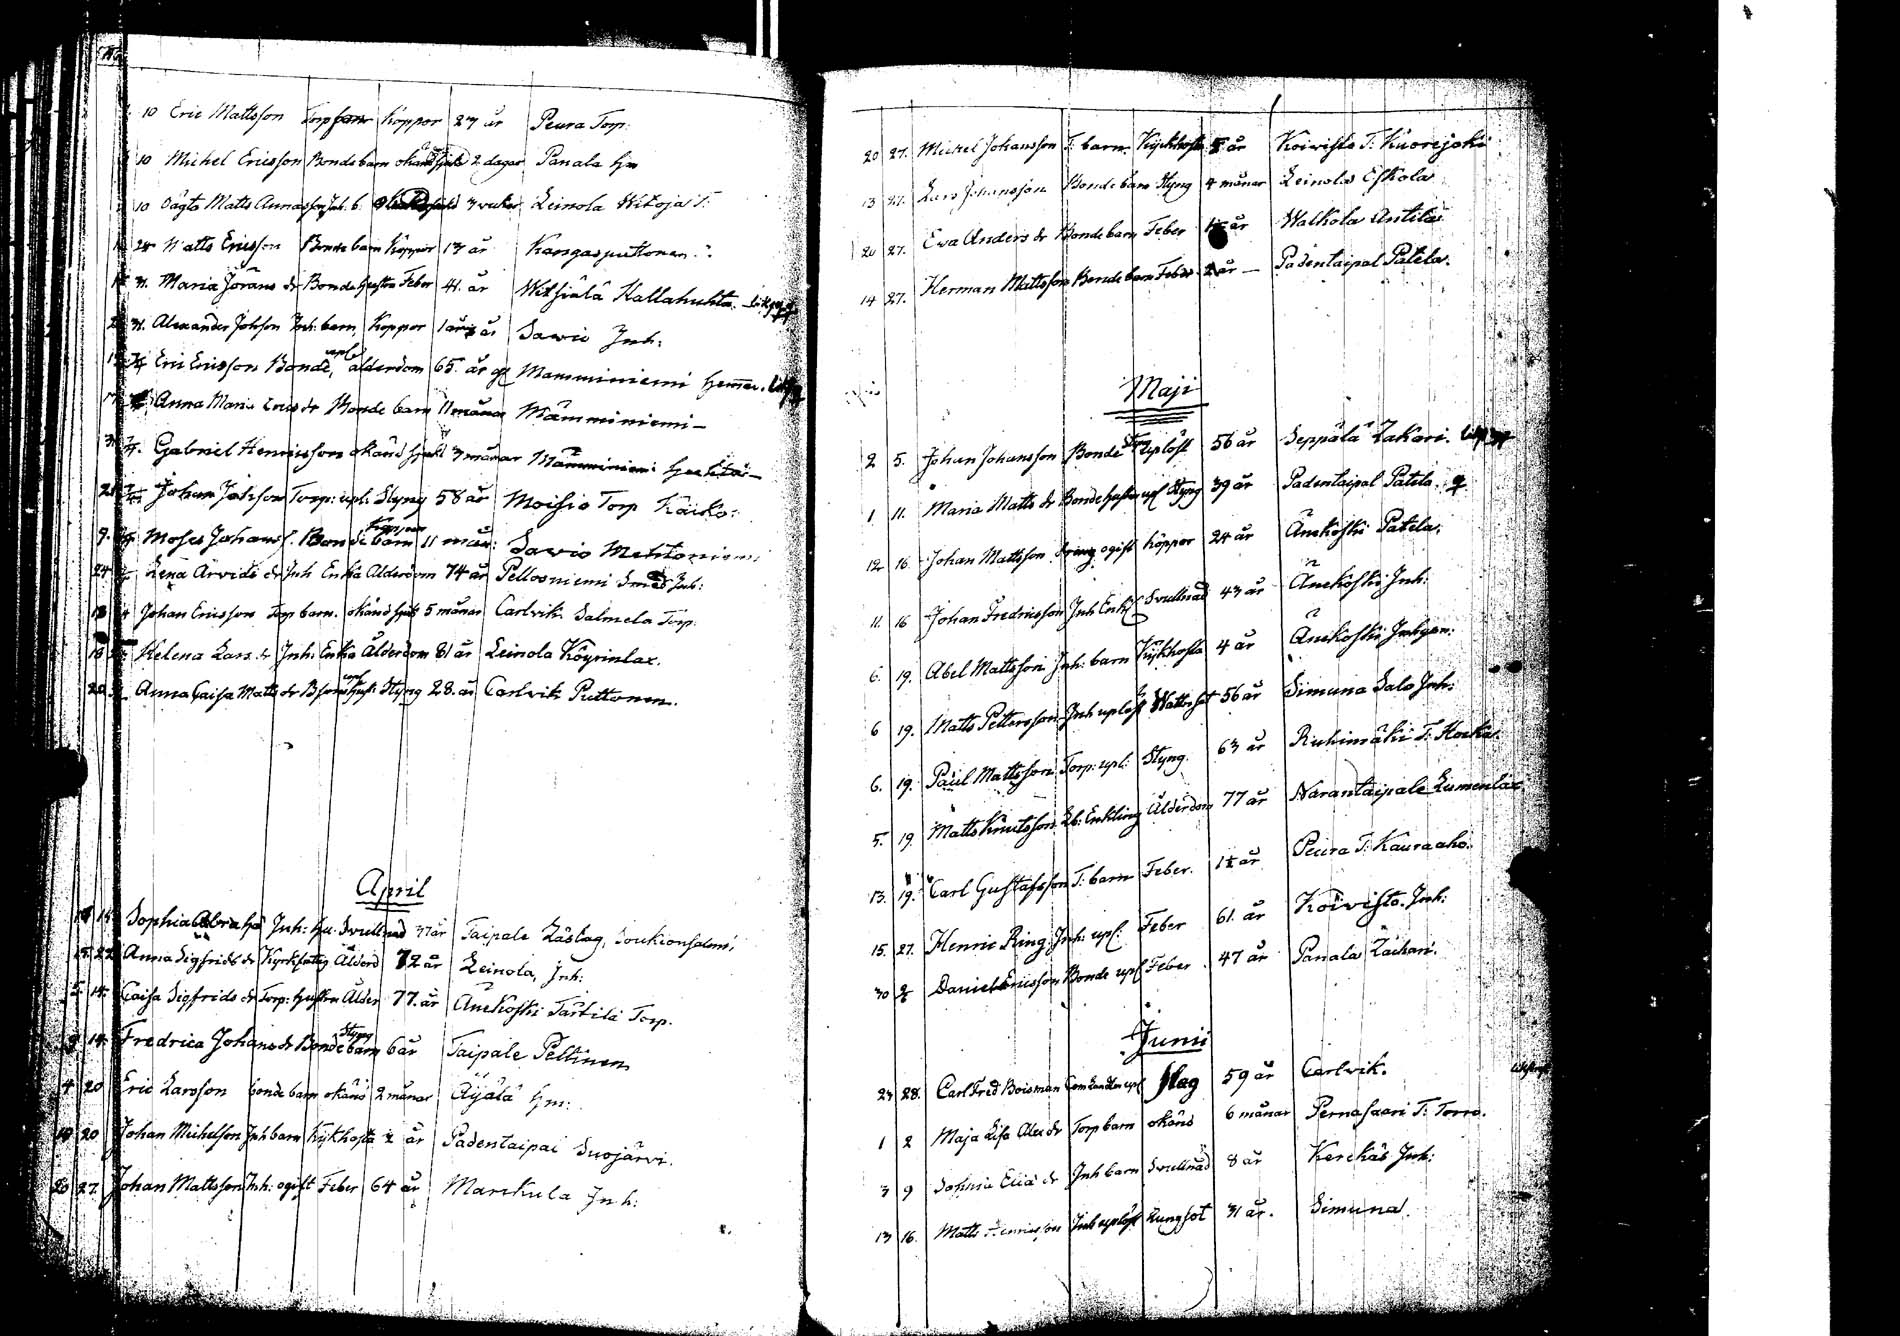 10 Eric Mattsson Torp Koppor 27 år Peura Torp.
10 Michel Ericsson Bondebarn okänd sjukd 2 dagar Panala Hm
10 Oägta Matts Annasson Inh. b. 3 veckor Leinola Witoja T.
24 Matts Ericsson Bonde barn Koppor 13 år Kangasputtonen
31. Maria Jörans dr Bonde hustru Feber 41. år Witsiälä Kallahuhta
31. Alexander Johsson Inh: barn Koppor 1 år Sawio Inh:
Eric Ericsson Bonde, upl alderdom 65. år Mamminiemi
Anna Maria Erics dr Bonde barn 11 månar Mämminiemi
Gabriel Henricsson okänd sjukd 3 månar Mämminiemi
Johan Johsson Torp: upl: Styng 58 år Moisio Torp Kaiko:
9. Moses Johans S. Bonde barn Koppor 11 mån: Sawio Mehtoniemi
24 Lena Arvids dr Inh Enka Alderdom 74 år Pellosniemi Smed Inh:
18 4 Johan Ericsson Torp barn. okänd sjukd 5 månar Carlvik Salmela Torp.
18 Helena Lars dr Inh: Enka Ålderdom 81 år Leinola Köyrinlax.
20 Anna Caisa Matts dr Bonde hust: upl Styng 28. år Carlvik Puttonen.
April
14 Sophia Abrah. Inh: Hu. Svullnad 37 år Taipale Läsbag, Soukionsalmi,
15. 22 Anna Sigfrids dr Kyrkfattig Alderd 72 år Leinola, Inh:
5. 14. Caisa Sigfrids dr Torp: hustru Alder 77. år Änekoski Tartila Torp.
9 14. Fredrica Johans dr Bonde barn Styng 6 år Taipale Peltinen
4 20 Eric Larsson bonde barn okänd 2 månar Äijälä Hm:
19 20 Johan Michelson Inh barn Kikhosta 2 år Padentaipal Suojärvi.
20 27. Johan Mattsson Inh: ogift Feber 64 år Marckula Inh:
20 27. Michel Johansson T: barn. Kijckhosta år Koivisto T. Kuorejoki
13 27. Lars Johansson Bonde barn Styng 4 månar Leinola Eskola
20 27. Ewa Anders dr Bonde barn Feber år Walkola Antila
14 27. Herman Mattsson Bonde barn Feber 2 år — Padentaipal Patela.
Maji
2 5. Johan Johansson Bonde Styng uplöst 56 år Seppälä Zakari.
1 11. Maria Matts dr Bonde hustru upl Styng 39 år Padentaipal Patela.
12 16 Johan Mattsson dräng ogift Koppor 24 år Änekoski Patela.
11. 16 Johan Fredricsson Inh Enkl Svullnad 43 år Änekoski Inh:
6. 19. Abel Mattsson Inh: barn Kijkhosta 4 år Änekoski Inhysn:
6 19. Matts Pettersson Inh uplöst Wattusot 56 år Simuna Salo Inh:
6. 19. Paul Mattsson Torp: upl: Styng. 63 år Ruhimäki T:
5. 19. Matts Knutsson Lb: Enkling Ålderdom 77 år Narantaipale Lumenlax
13. 19. Carl Gustafsson T: barn Feber. 1½ år Peura T: Kauraaho.
15. 27. Henric Ring Inh: upl: Feber 61. år Koivisto. Inh:
30 Daniel Ericsson Bonde upl Feber 47 år Panala Zachari.
Junii
23 28. Carl Fred Boisman upl slag 59 år Carlvik.
1 2 Maja Lisa Alex dr Torp barn okänd 6 månar Pernasaari T: Torro.
3 9 Sophia Elia dr Inh barn Svullnad 8 år Kerckäs Inh:
13 16. Matts Henricsson Inh uplöst Lungsot 31 år. Simuna